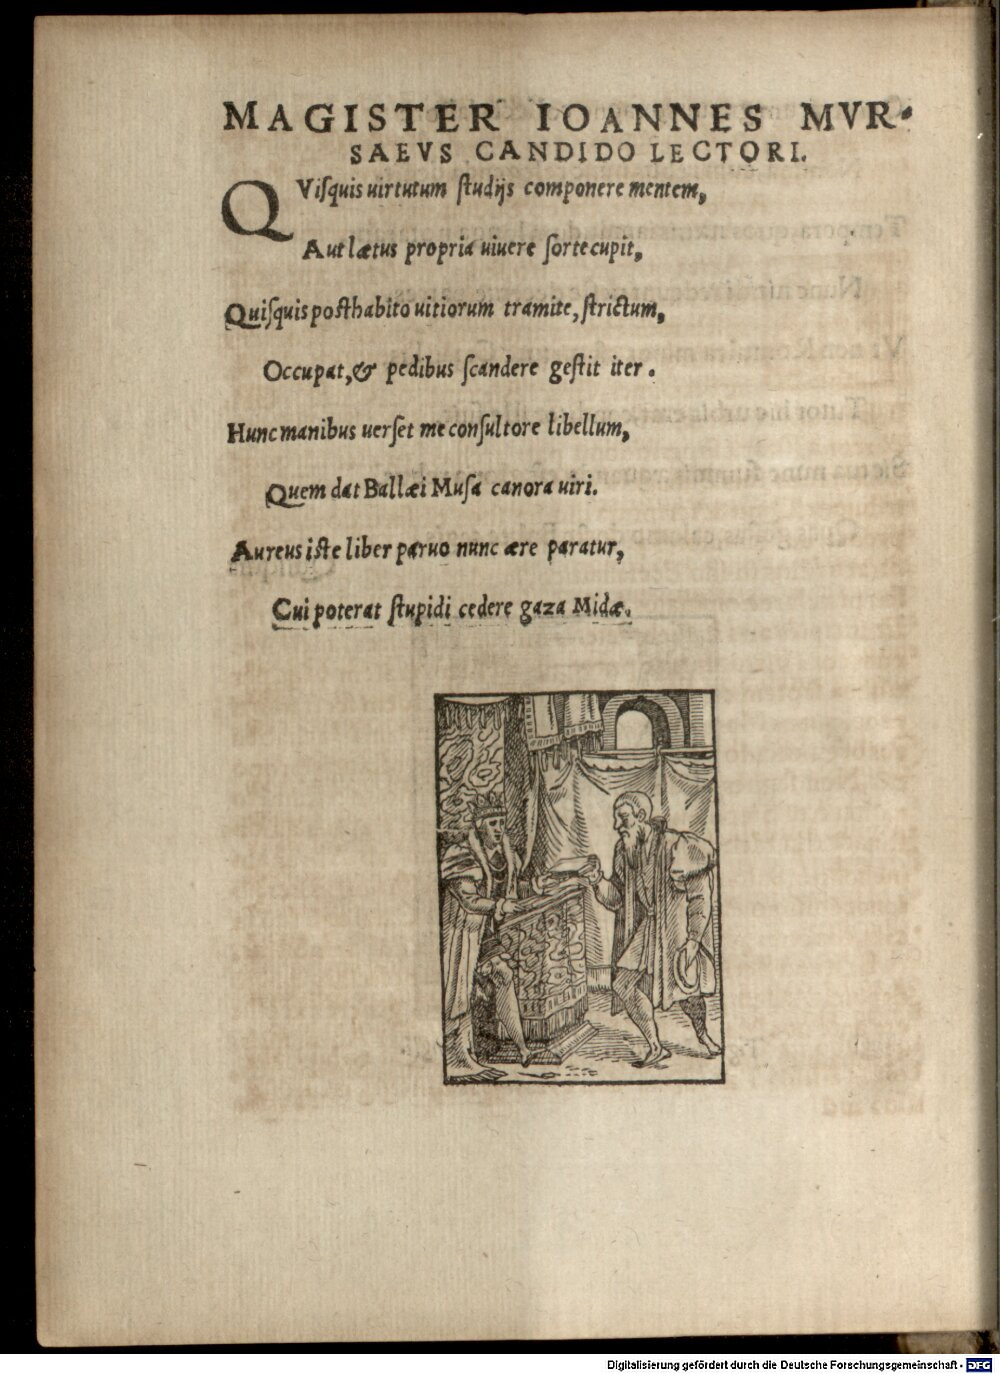 MAGISTER IOANNES MVR-
SAEVS CANDIDO LECTORI.
QViſquis uirtutum ſtudijs componere mentem,
Aut lætus propria uiuere ſorte cupit,
Quiſquis posthabito uitiorum tramite, ſtrictum,
Occupat, & pedibus ſcandere geſtit iter.
Hunc manibus uerſet me conſultore libellum,
Quem dat Ballæi Muſa canora uiri.
Aureus iste liber paruo nunc ære paratur,
Cui poterat ſtupidi cedere gaza Midæ.
Digitalisierung gefördert durch die Deutsche Forschungsgemeinschaft - DFG